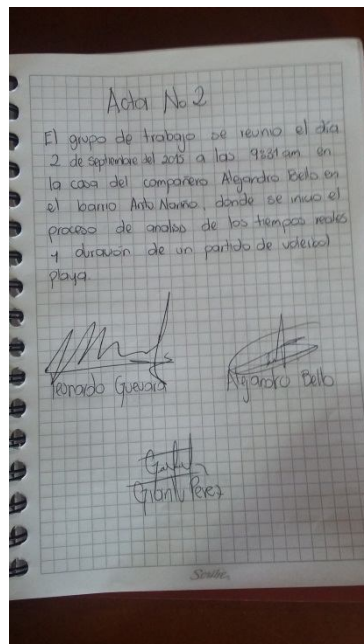 Acta No 2
El grupo de trabajo se reunio el día
2 de septiembre del 2015 a las 9:31 am en
la casa del compañero Alejandro Bello en
el barrio Anto Nariño, donde se inicio el
proceso de analisis de los tiempos reales
y duración de un partido de voleibol
playa.
Leonardo Guevara
Alejandro Bello
Perez
Scribe